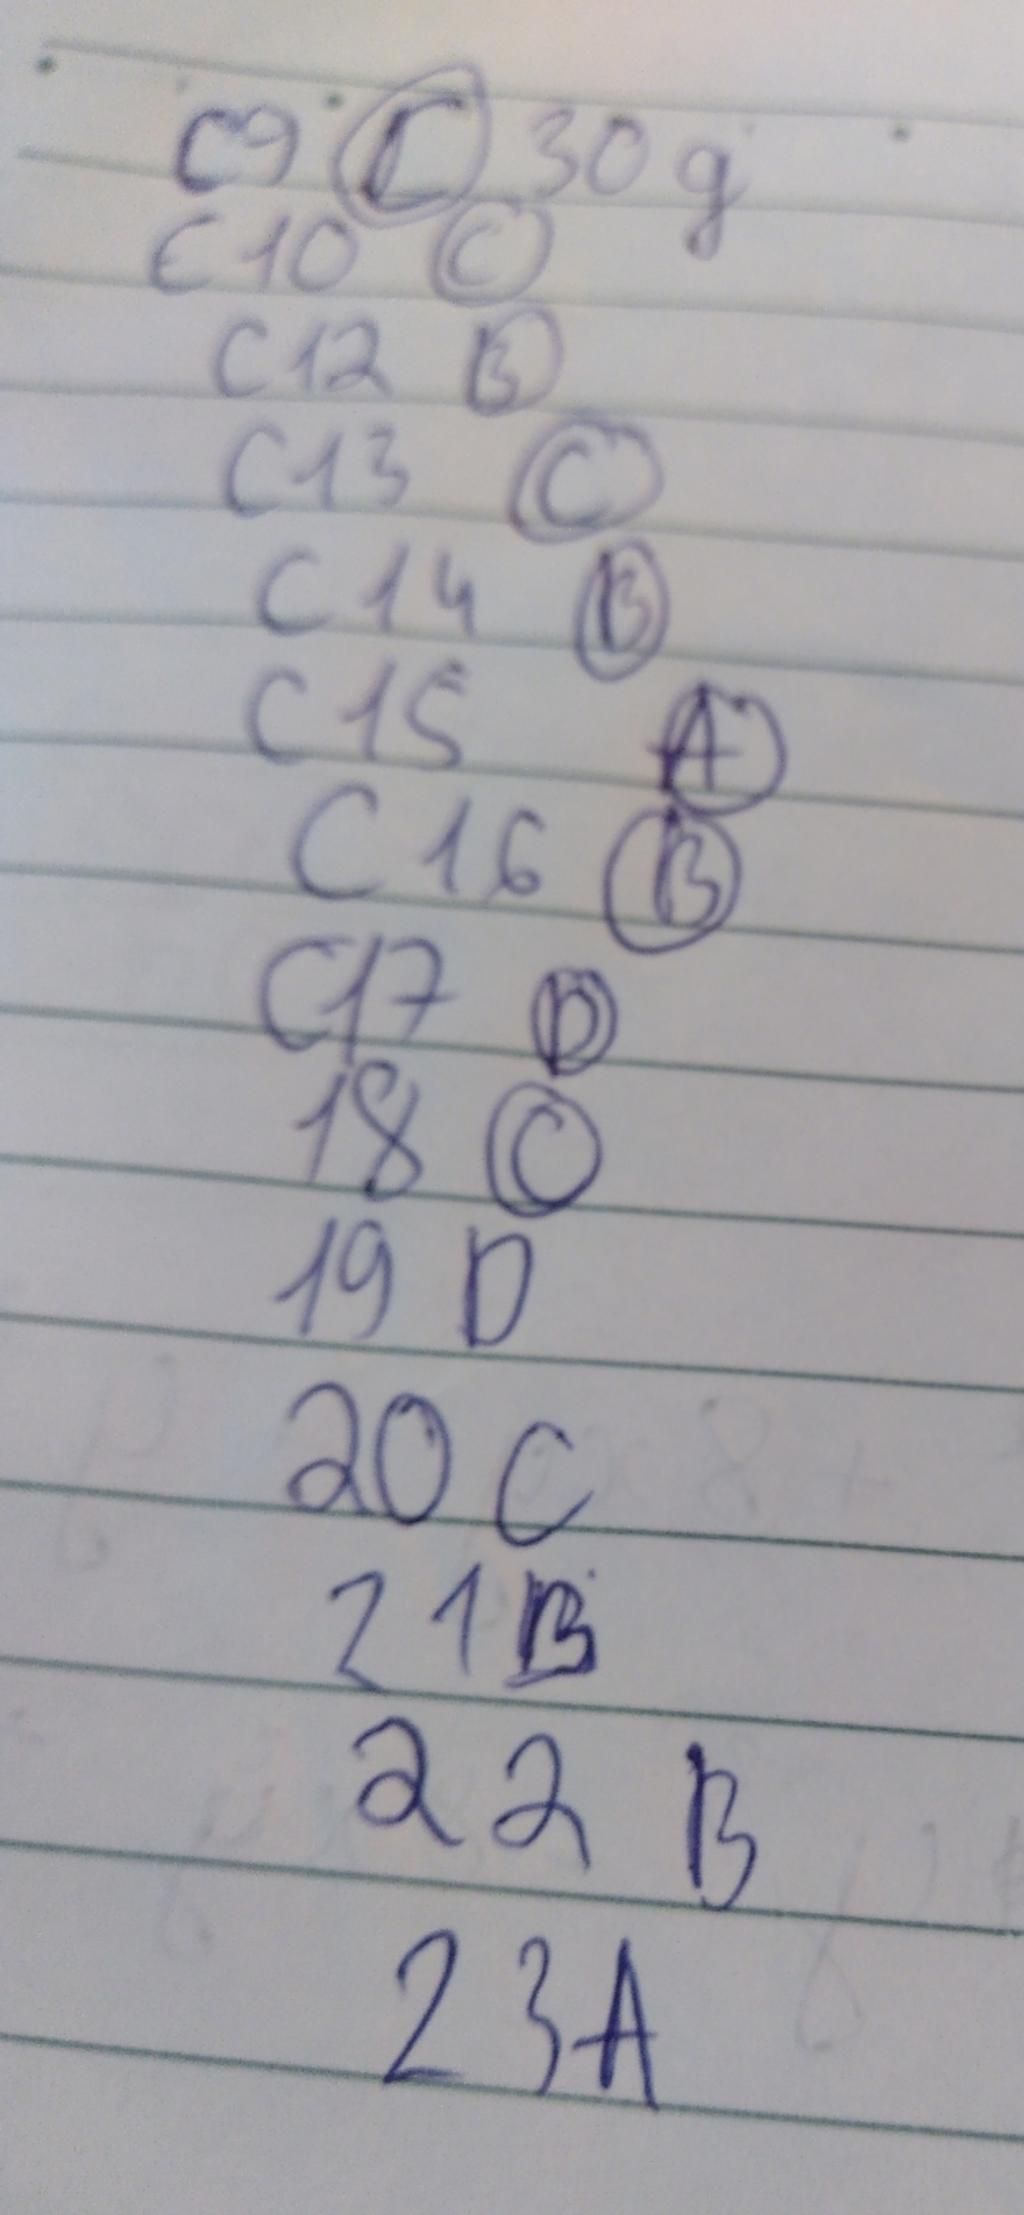 C9 C 30 g
C10 C
C12 B
C13 C
C14 B
C15 A
C16 B
C17 D
18 C
19 D
20 C
21 B
22 B
23 A